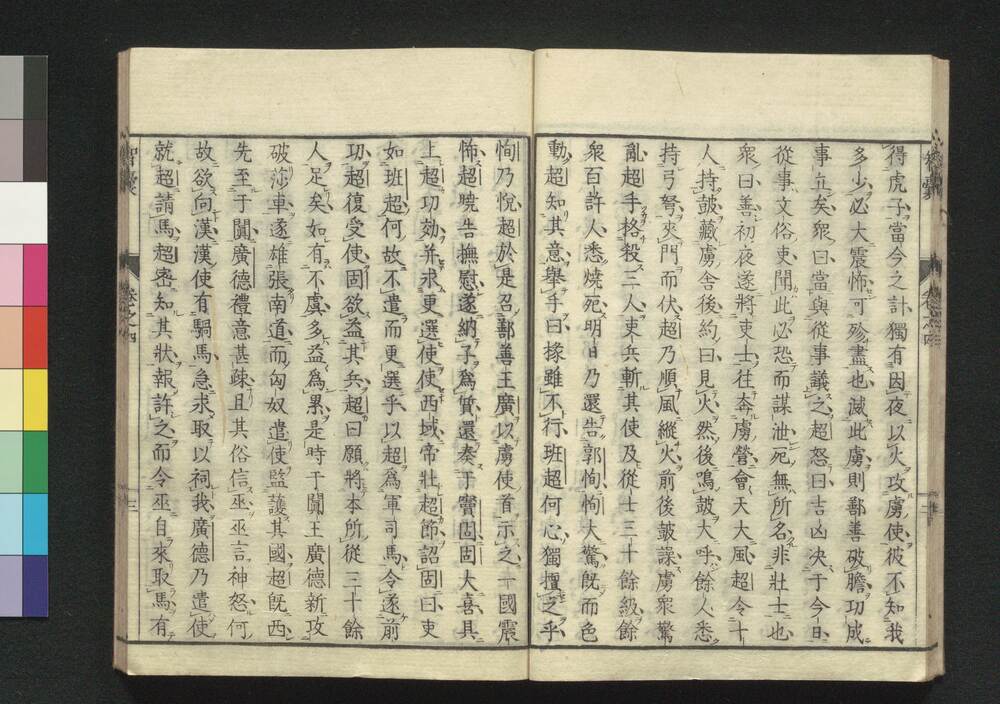 得虎子當今之計獨有因夜以火攻虜使彼不知我
多少必大震怖可殄盡也滅此虜則鄯善破膽功成
事立矣衆曰當與從事議之超怒曰吉凶决于今日
從事文俗吏聞此必恐而謀泄死無所名非壯士也
衆曰善初夜遂將吏士往奔虜營會天大風超令十
人持皷藏虜舍後約曰見火然後鳴皷大呼餘人悉
持弓弩夾門而伏超乃順風縱火前後皷譟虜衆驚
亂超手格殺三人吏兵斬其使及從士三十餘級餘
衆百許人悉燒死明日乃還告郭恂恂大驚既而色
動超知其意舉手曰掾雖不行班超何心獨擅之乎
恂乃悅超於是召鄯善王廣以虜使首示之一國震
怖超曉告撫慰遂納子爲質還奏于竇固固大喜具
上超功効并求更選使使西域帝壯超節詔固曰吏
如班超何故不遣而更選乎以超爲軍司馬令遂前
功超復受使固欲益其兵超曰願將本所從三十餘
人足矣如有不虞多益爲累是時于闐王廣德新攻
破莎車遂雄張南道而匈奴遣使監護其國超既西
先至于闐廣德禮意甚疎且其俗信巫巫言神怒何
故欲向漢漢使有騧馬急求取以祠我廣德乃遣使
就超請馬超密知其狀報許之而令巫自來取馬有
智囊
卷之四
三